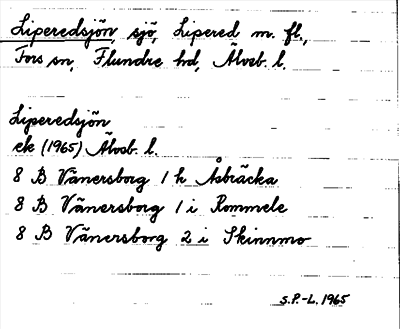 Liperedsjön, sjö, Lipered m. fl.,
Fors sn, Flundre hd, Älvsb. l.
Liperedsjön
ek (1965) Älvsb. l.
8 B Vänersborg 1 h Åsbräcka
8 B Vänersborg 1 i Rommele
8 B Vänersborg 2 i Skinnmo
S.P.-L. 1965